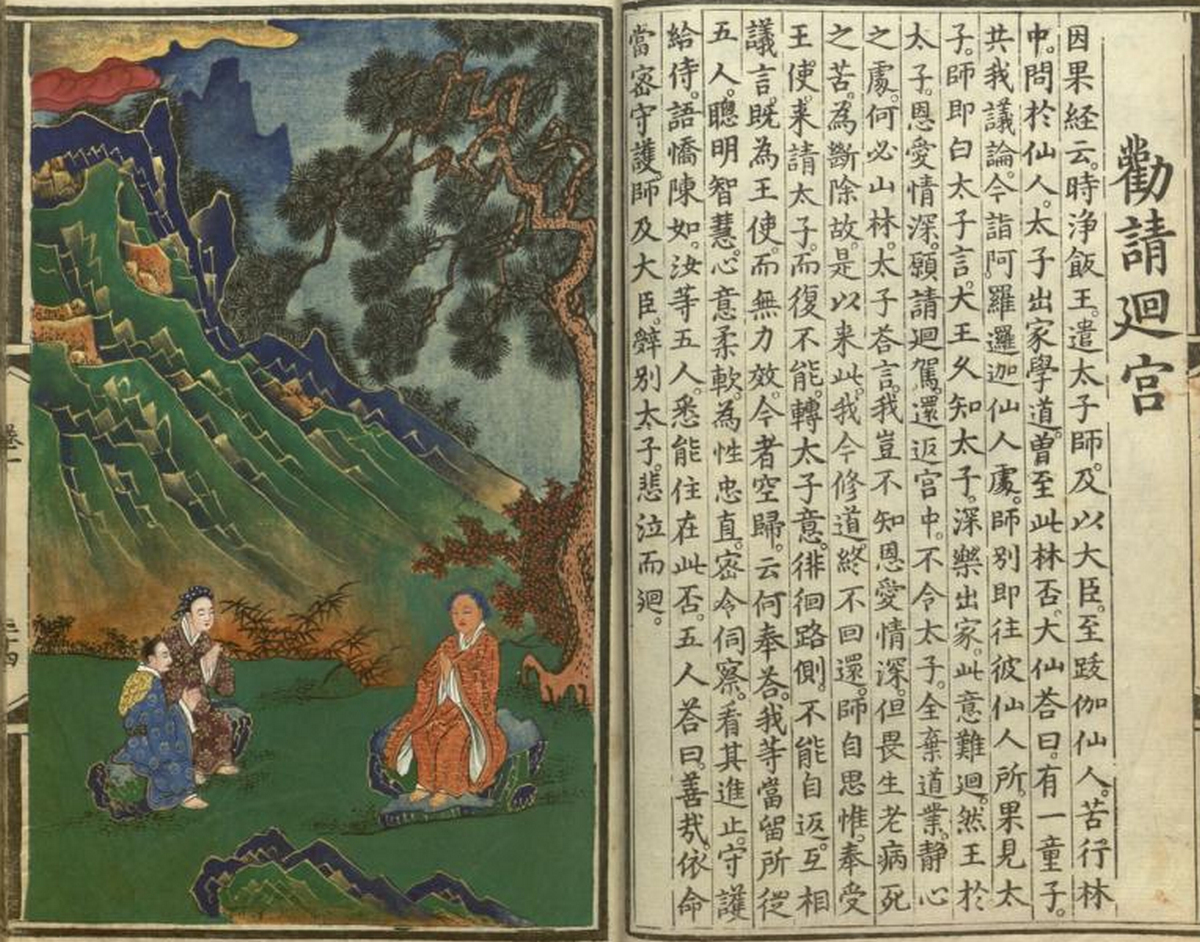 勸請迴宮
因果経云。時淨飯王。遣太子師。及以大臣。至跋伽仙人。苦行林
中。問於仙人。太子出家學道。曽至此林否。大仙荅曰。有一童子。
共我議論。今詣阿羅邏迦仙人處。師別即往彼仙人所。果見太
子。師即白太子言。大王久知太子。深樂出家。此意難迴。然王於
太子。恩愛情深。願請迴駕。還返宮中。不令太子。全棄道業。静心
之處。何必山林。太子荅言。我豈不知恩愛情深。但畏生老病死
之苦。為斷除故。是以来此。我今修道。終不回還。師自思惟。奉受
王使。来請太子。而復不能。轉太子意。徘徊路側。不能自返。互相
議言。既為王使。而無力效。今者空歸。云何奉荅。我等當留所從
五人。聰明智慧。心意柔軟。為性忠直。宻令伺察。看其進止。守護
給侍。語憍陳如。汝等五人。悉能住在此否。五人荅曰。善哉。依命
當宻守護。師及大臣。辭別太子。悲泣而迴。
卷一
二十四